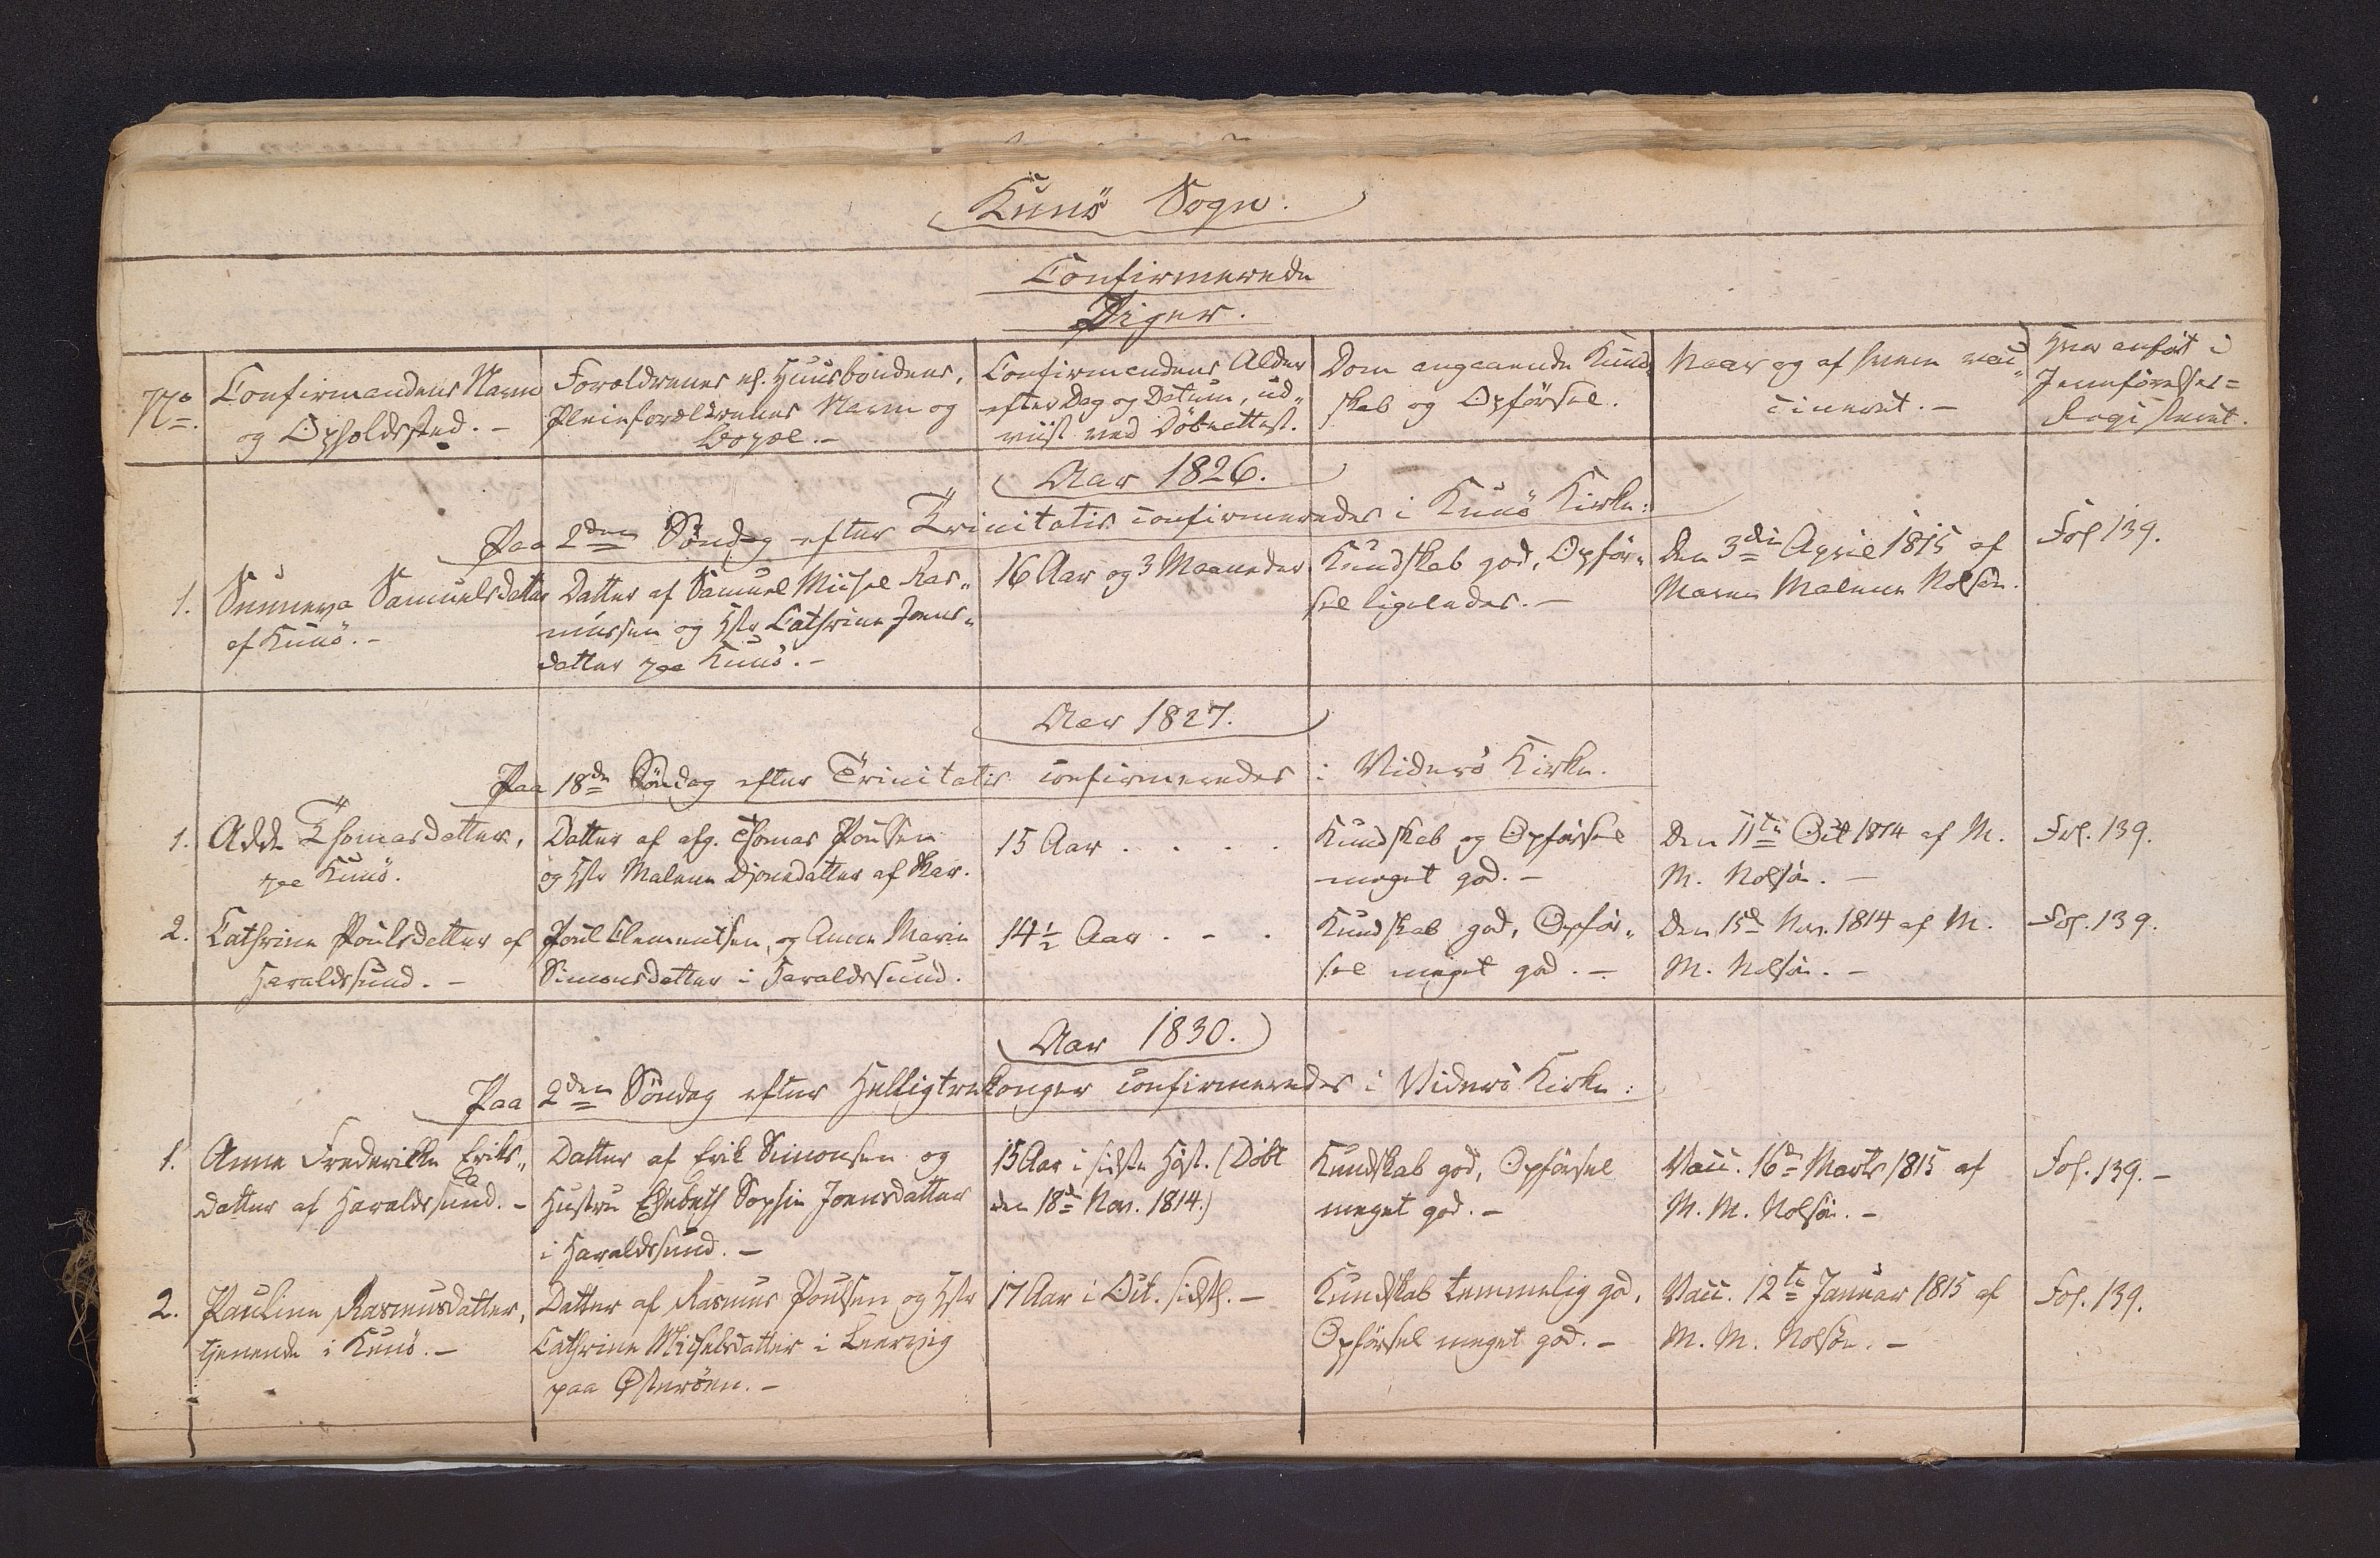 Kunö Sogn.
Confirmerede
Piger.
No.
Confirmandens Navn
og Opholdsted. -
Forældrenes el. Huusbondens,
Pleieforældrenes Navn og
Bopæl. -
Confirmandens Alder
efter Dag og Datum, ud„
viist ved Döbeattest.
Dom angaaende Kund„
skab og Opförsel.
Naar og af hvem vac„
cineret. -
Hvor anfört i
Jevnförelses=
Registeret.
Aar 1826.
Paa 2den Söndag efter Trinitatis confirmeredes i Kunö Kirke:
1.
Sunneva Samuelsdatter
af Kunö. -
Datter af Samuel Michel Ras„
mussen og Hstr Cathrine Joens„
datter paa Kunö. -
16 Aar og 3 Maaneder
Kundskab god, Opför„
sel ligeledes. -
Den 3die April 1815 af
Maren Malene Nolsön.
Fol 139.
Aar 1827.
Paa 18de Söndag efter Trinitatis confirmeredes i Viderö Kirke.
1.
Adde Thomasdatter,
paa Kunö.
Datter af afg. Thomas Poulsen
og Hstr Malene Djonedatter af Skar.
15 Aar . . . .
Kundskab og Opförsel
meget god. -
Den 11te Oct 1814 af M.
M. Nolsön. -
Fol. 139.
2.
Cathrine Poulsdatter af
Haraldssund. -
Poul Clementsen, og Anne Marie
Simonsdatter i Haraldssund.
14 1/2 Aar . - .
Kundskab god, Opför„
sel meget god. -
Den 15de Nov. 1814 af M.
M. Nolsön. -
Fol. 139.
Aar 1830.
Paa 2den Söndag efter Helligtrekonger confirmeredes i Viderö Kirke:
1.
Anne Frederikke Eriks„
datter af Haraldssund. -
Datter af Erik Simonsen og
Hustru Elsebeth Sophie Joensdatter
i Haraldssund. -
15 Aar i sidste Höst. (Döbt
den 18de Nov. 1814.)
Kundskab god, Opförsel
meget god. -
Vacc. 16de Marts 1815 af
M. M. Nolsön. -
Fol. 139. -
2.
Pauline Rasmusdatter,
tjenende i Kunö. -
Datter af Rasmus Poulsen og Hstr
Cathrine Michelsdatter i Leervig
paa Österöen. -
17 Aar i Oct. sidstl. -
Kundskab temmelig god,
Opförsel meget god. -
Vacc. 12te Januar 1815 af
M. M. Nolsön. -
Fol. 139.